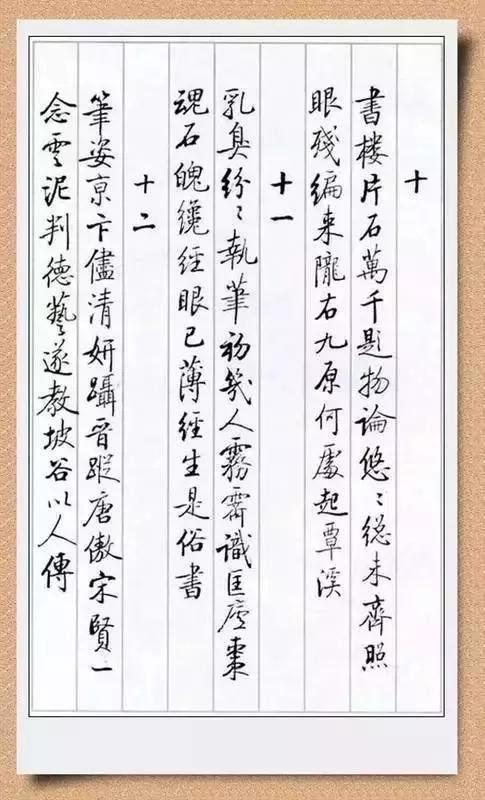 十
書楼片石萬千題物論悠〻総未齊照
眼殘編来隴右九原何處起覃溪
十一
乳臭紛〻執筆初幾人霧霽識匡廬棗
魂石魄纔經眼已薄經生是俗書
十二
筆姿京卞儘清妍躡晋蹤唐傲宋賢一
念雲泥判德藝遂教坡谷以人傳